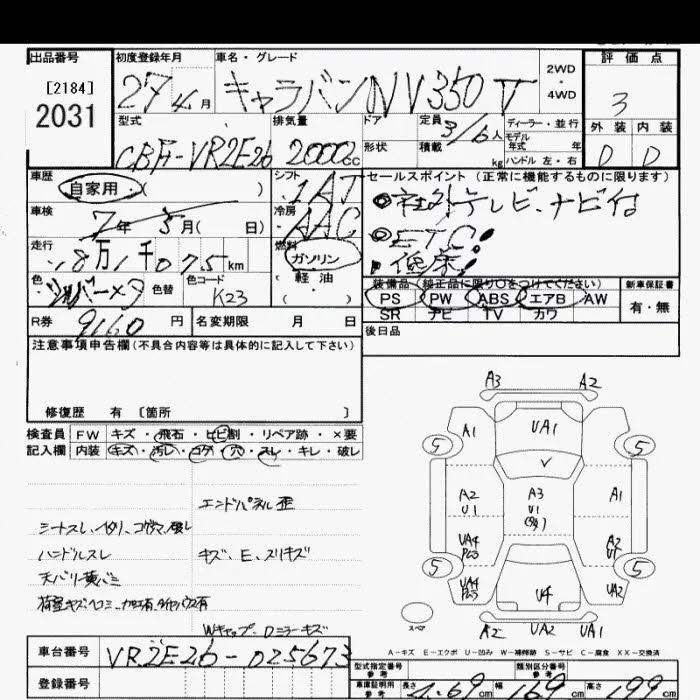 出品番号 初度登録年月 車名・グレード 評価点
[2184]
2031
27年4月 キャラバンNV350 2WD・4WD 3
型式 排気量 ドア 定員 3/6人 ディーラー・並行
外装 内装
モデル年式 年
形状 積載 kg ハンドル 左・右
CBF-VR2E26 2000cc D D
車歴 シフト セールスポイント (正常に機能するものに限ります)
自家用・( ) 1AT ◎社外テレビ、ナビ付
車検 冷房
7年5月( 日) AAC ◎ETC!
走行 燃料
18万1千075km ガソリン ・低床!
色 色替 色コード 軽油
シルバーメタ K23 ・( )
装備品 (純正品に限り○をつけてください) 新車保証書
PS PW ABS エアB AW 有・無
SR ナビ TV カワ
R券 9160円 名変期限 月 日 後日品
注意事項申告欄(不具合内容等は具体的に記入して下さい)
修復歴 有 〔箇所 〕
検査員 FW キズ・飛石・ヒビ割・リペア跡・×要
記入欄 内装 キズ・汚レ・コゲ・穴・スレ・キレ・破レ
エンドパネル歪
ハンドルスレ キズ、E、スリキズ
天バリ黄バミ
Wキャップ、Dミラーキズ
A3 A2
A1 UA1
5 5
A2 U1 A3 U1 A1
UA4 A2
5 5
UA4 U4 UA2
スペア
A2 UA2 UA1
A-キズ E-エクボ U-凹み W-補修跡 S-サビ C-腐食 XX-交換済
車台番号 VR2E26-025673
型式指定番号 参考 類別区分番号 参考
登録番号 車庫証明用 参考 長さ 4.69cm 幅 169cm 高さ 199cm